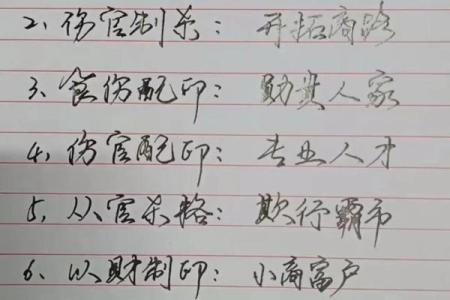 2、伤官制杀：开拓商路
3、食伤配印：勋贵人家
4、伤官配印：专业人才
5、从官杀格：欺行霸市
6、以财制印：小商富户